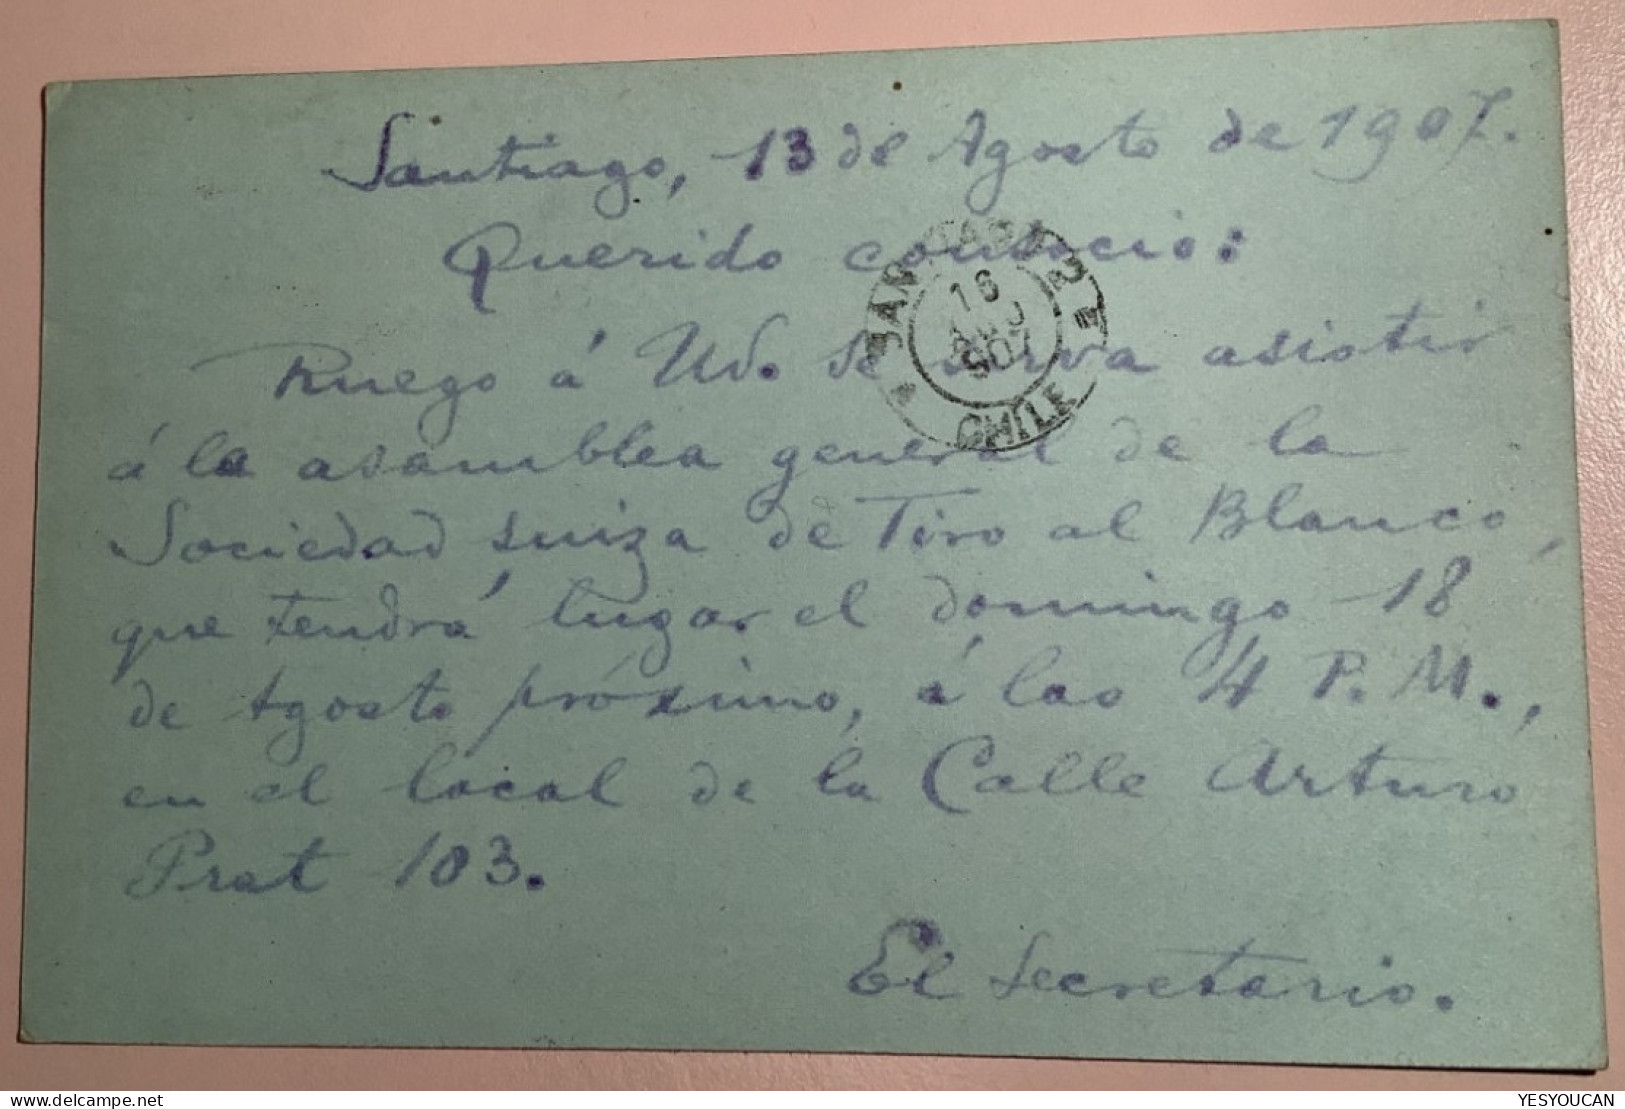 Santiago, 13 de Agosto de 1907.
Querido consocio:
Ruego á Ud. se sirva asistir
á la asamblea general de la
Sociedad suiza de Tiro al Blanco,
que tendrá lugar el domingo 18
de Agosto próximo, á las 4 P. M.,
en el local de la Calle Arturo
Prat 103.
El Secretario.
SANTIAGO 2
16
AGO
907
CHILE
YESYOUCAN